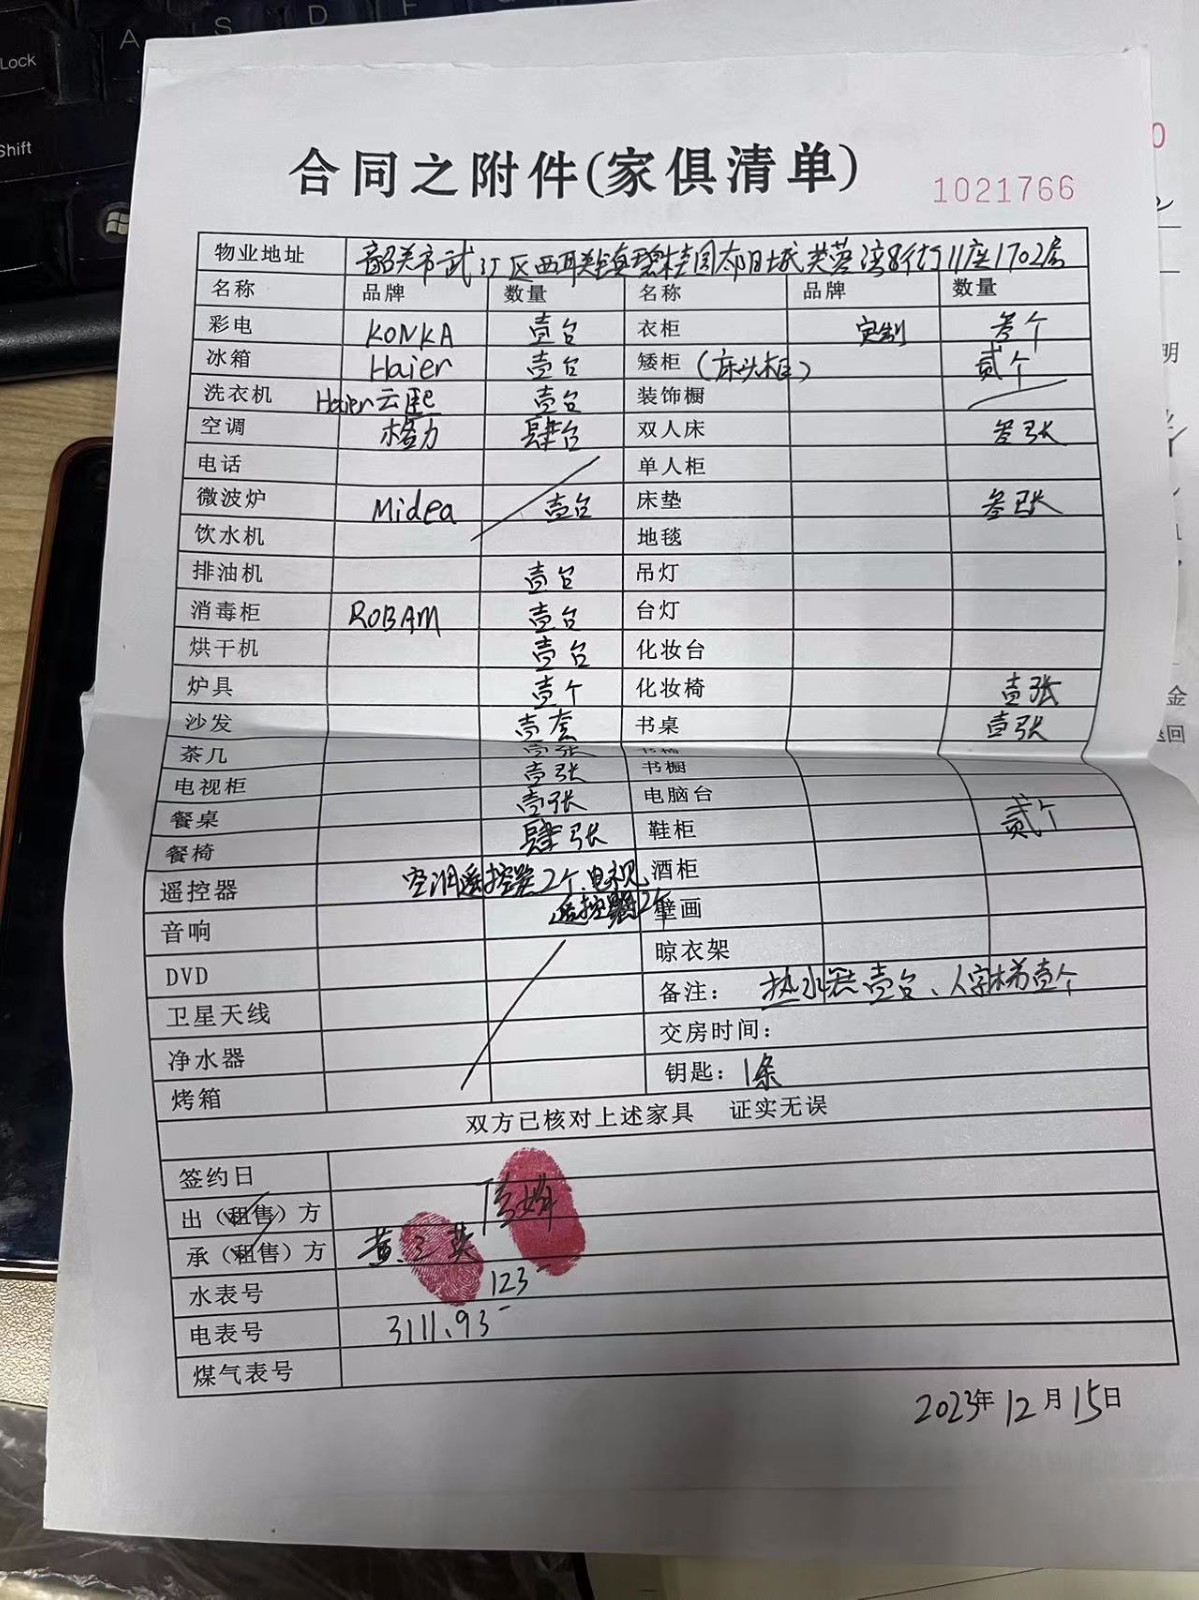 A S D F
Lock
Shift
合同之附件(家俱清单)
1021766
物业地址 韶关市武江区西联镇碧桂园太阳城芙蓉湾8街11座1702房
名称 品牌 数量 名称 品牌 数量
彩电 KONKA 壹台 衣柜 定制 叁个
冰箱 Haier 壹台 矮柜 (床头柜) 贰个
洗衣机 Haier云熙 壹台 装饰橱
空调 格力 肆台 双人床 叁张
电话 单人柜
微波炉 Midea 壹台 床垫 叁张
饮水机 地毯
排油机 壹台 吊灯
消毒柜 ROBAM 壹台 台灯
烘干机 壹台 化妆台
炉具 壹个 化妆椅 壹张
沙发 壹套 书桌 壹张
茶几 壹张 书椅
电视柜 壹张 书橱
餐桌 壹张 电脑台
餐椅 肆张 鞋柜 贰个
遥控器 空调遥控器2个、电视 酒柜
音响 遥控器2个 壁画
DVD 晾衣架
卫星天线 备注: 热水器壹台、人字梯壹个
净水器 交房时间:
烤箱 钥匙: 1条
双方已核对上述家具 证实无误
签约日
出(租售)方
承(租售)方 黄三英
水表号 123
电表号 3111.93
煤气表号
2023年12月15日
0
明
金
退回